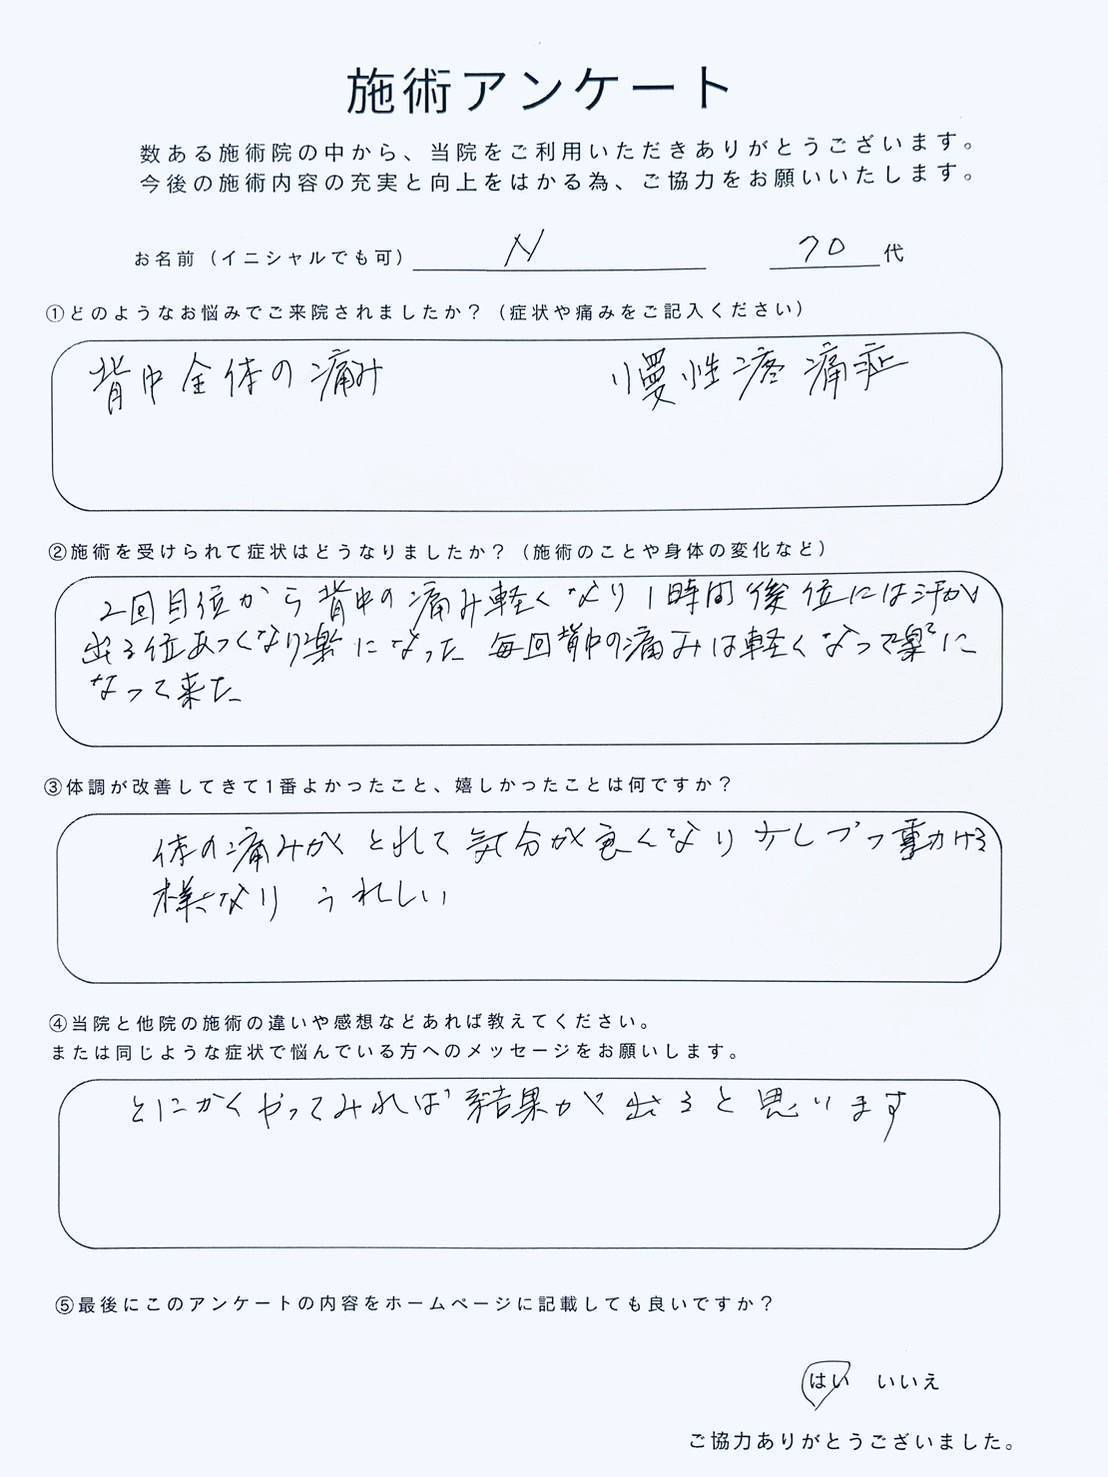 施術アンケート
数ある施術院の中から、当院をご利用いただきありがとうございます。
今後の施術内容の充実と向上をはかる為、ご協力をお願いいたします。
お名前（イニシャルでも可） N 70 代
①どのようなお悩みでご来院されましたか？（症状や痛みをご記入ください）
背中全体の痛み 慢性疼痛症
②施術を受けられて症状はどうなりましたか？（施術のことや身体の変化など）
2回目位から背中の痛み軽くなり1時間後位には汗が
出る位あつくなり楽になった 毎回背中の痛みは軽くなって楽に
なって来た
③体調が改善してきて1番よかったこと、嬉しかったことは何ですか？
体の痛みがとれて気分が良くなり少しづつ動ける
様になり うれしい
④当院と他院の施術の違いや感想などあれば教えてください。
または同じような症状で悩んでいる方へのメッセージをお願いします。
とにかくやってみれば結果が出ると思います
⑤最後にこのアンケートの内容をホームページに記載しても良いですか？
はい いいえ
ご協力ありがとうございました。